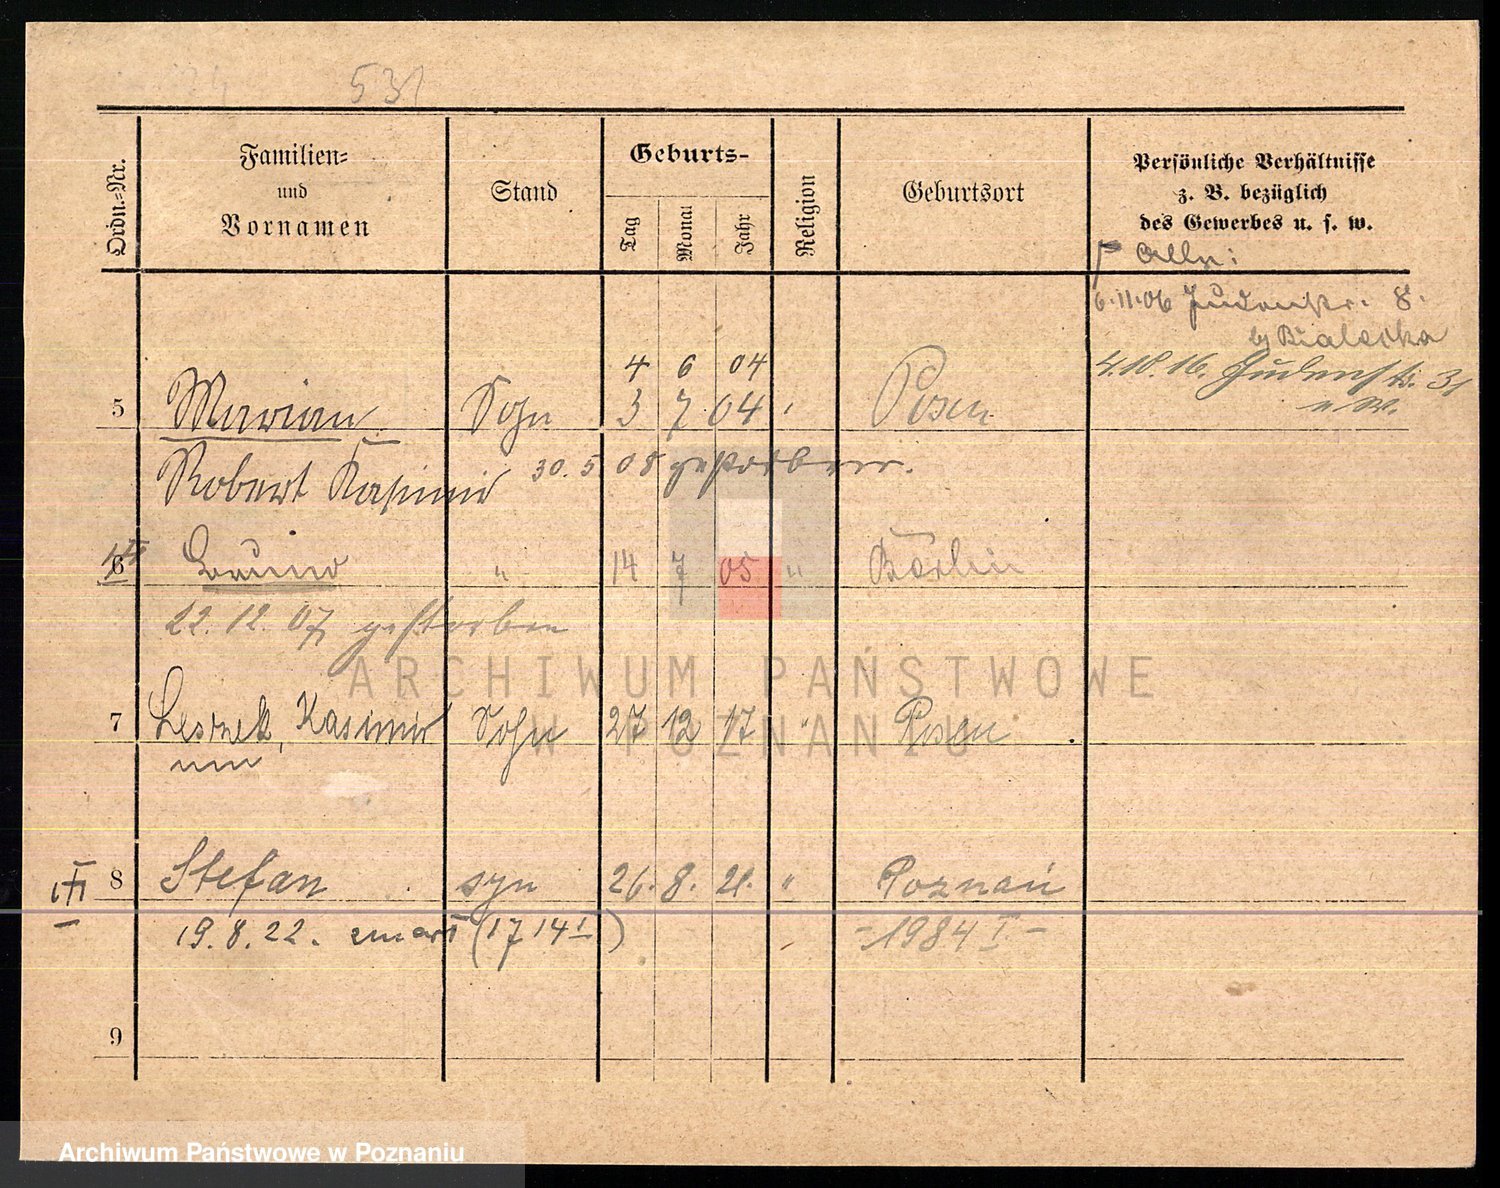 531
Ordn.-Nr.
Familien-
und
Vornamen
Stand
Geburts-
Tag
Monat
Jahr
Religion
Geburtsort
Persönliche Verhältnisse
z. B. bezüglich
des Gewerbes u. s. w.
6.11.06 Judenstr. 8.
b/ Bialecka
4.10.16. Judenstr. 31
4 6 04
5 Marian Sohn 3 7 04 Posen
Robert Kasimir 30.5 08 gestorben.
6 Bruno " 14 7 05 " Berlin
22.12.07 gestorben
ARCHIWUM PAŃSTWOWE
W POZNANIU
7 Leszek, Kasimir Sohn 27 12 17 " Posen
8 Stefan syn 26. 8. 21. " Poznań
19.8.22. zmarł (1714 I) -1984 I-
9
Archiwum Państwowe w Poznaniu